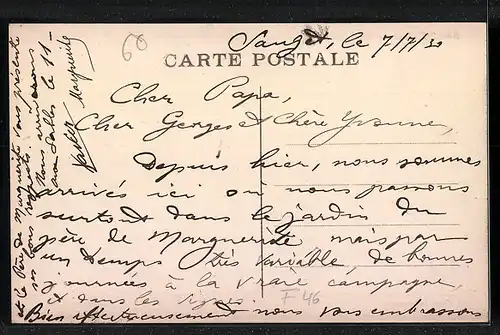 60
Sauget, le 7/7/30
CARTE POSTALE
Cher Papa,
Cher Georges et Chère Yvonne,
Depuis hier, nous sommes
arrivés ici où nous passons
surtout dans le jardin du
père de Marguerite mais par
un temps très variable, de bonnes
journées à la vraie campagne,
et dans les vignes
F 46
Bien affectueusement nous vous embrassons
Marguerite
et le Père de Marguerite vous présente
ses bons
Nous
aux Salles le 11 -